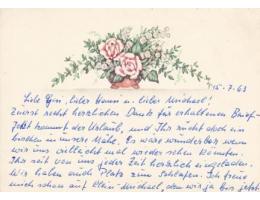 15.7.63
Liebe Gin, lieber Hann u. lieber Michael!
Zuerst recht herzlichen Dank für erhaltenen Brief.
Jetzt kommt der Urlaub, und Ihr nicht doch ein
bischen in unsere Nähe. Es wäre wunderbar wenn
wir uns vielleicht mal wieder sehen könnten.
Ihr seit von uns jeder Zeit herzlich eingeladen.
Wir haben auch Platz zum schlafen. Ich freue
mich schon auf klein Michael, den wir ja bis jetzt